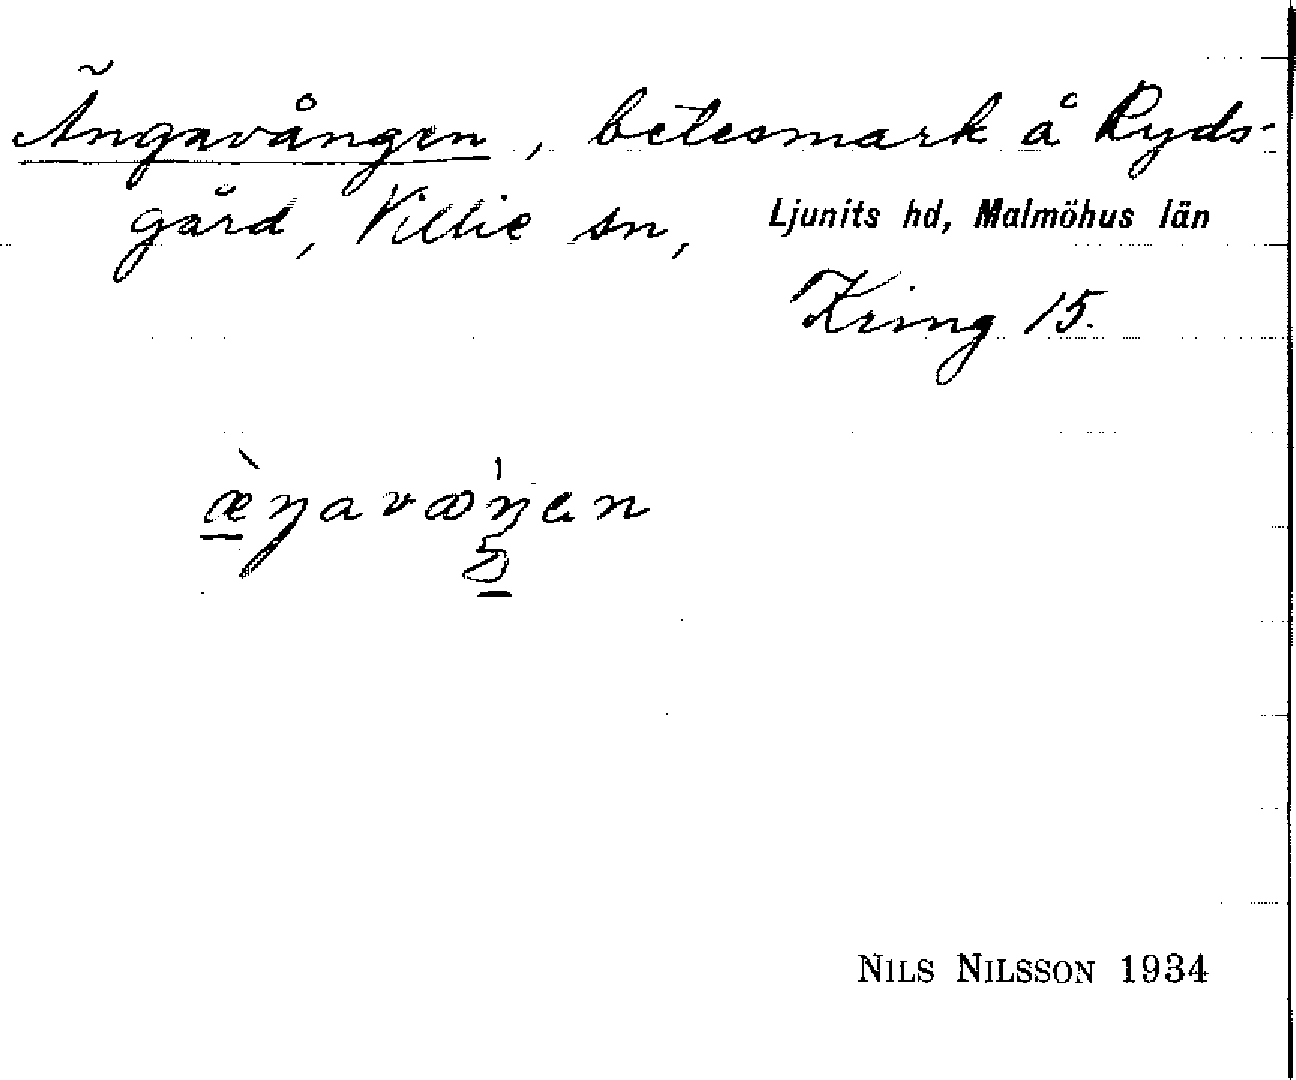 Ängavången, betesmark å Ryds-
gård, Villie sn, Ljunits hd, Malmöhus län
Kring 15.
æ̀ŋavꝏ'ŋen
NILS NILSSON 1934